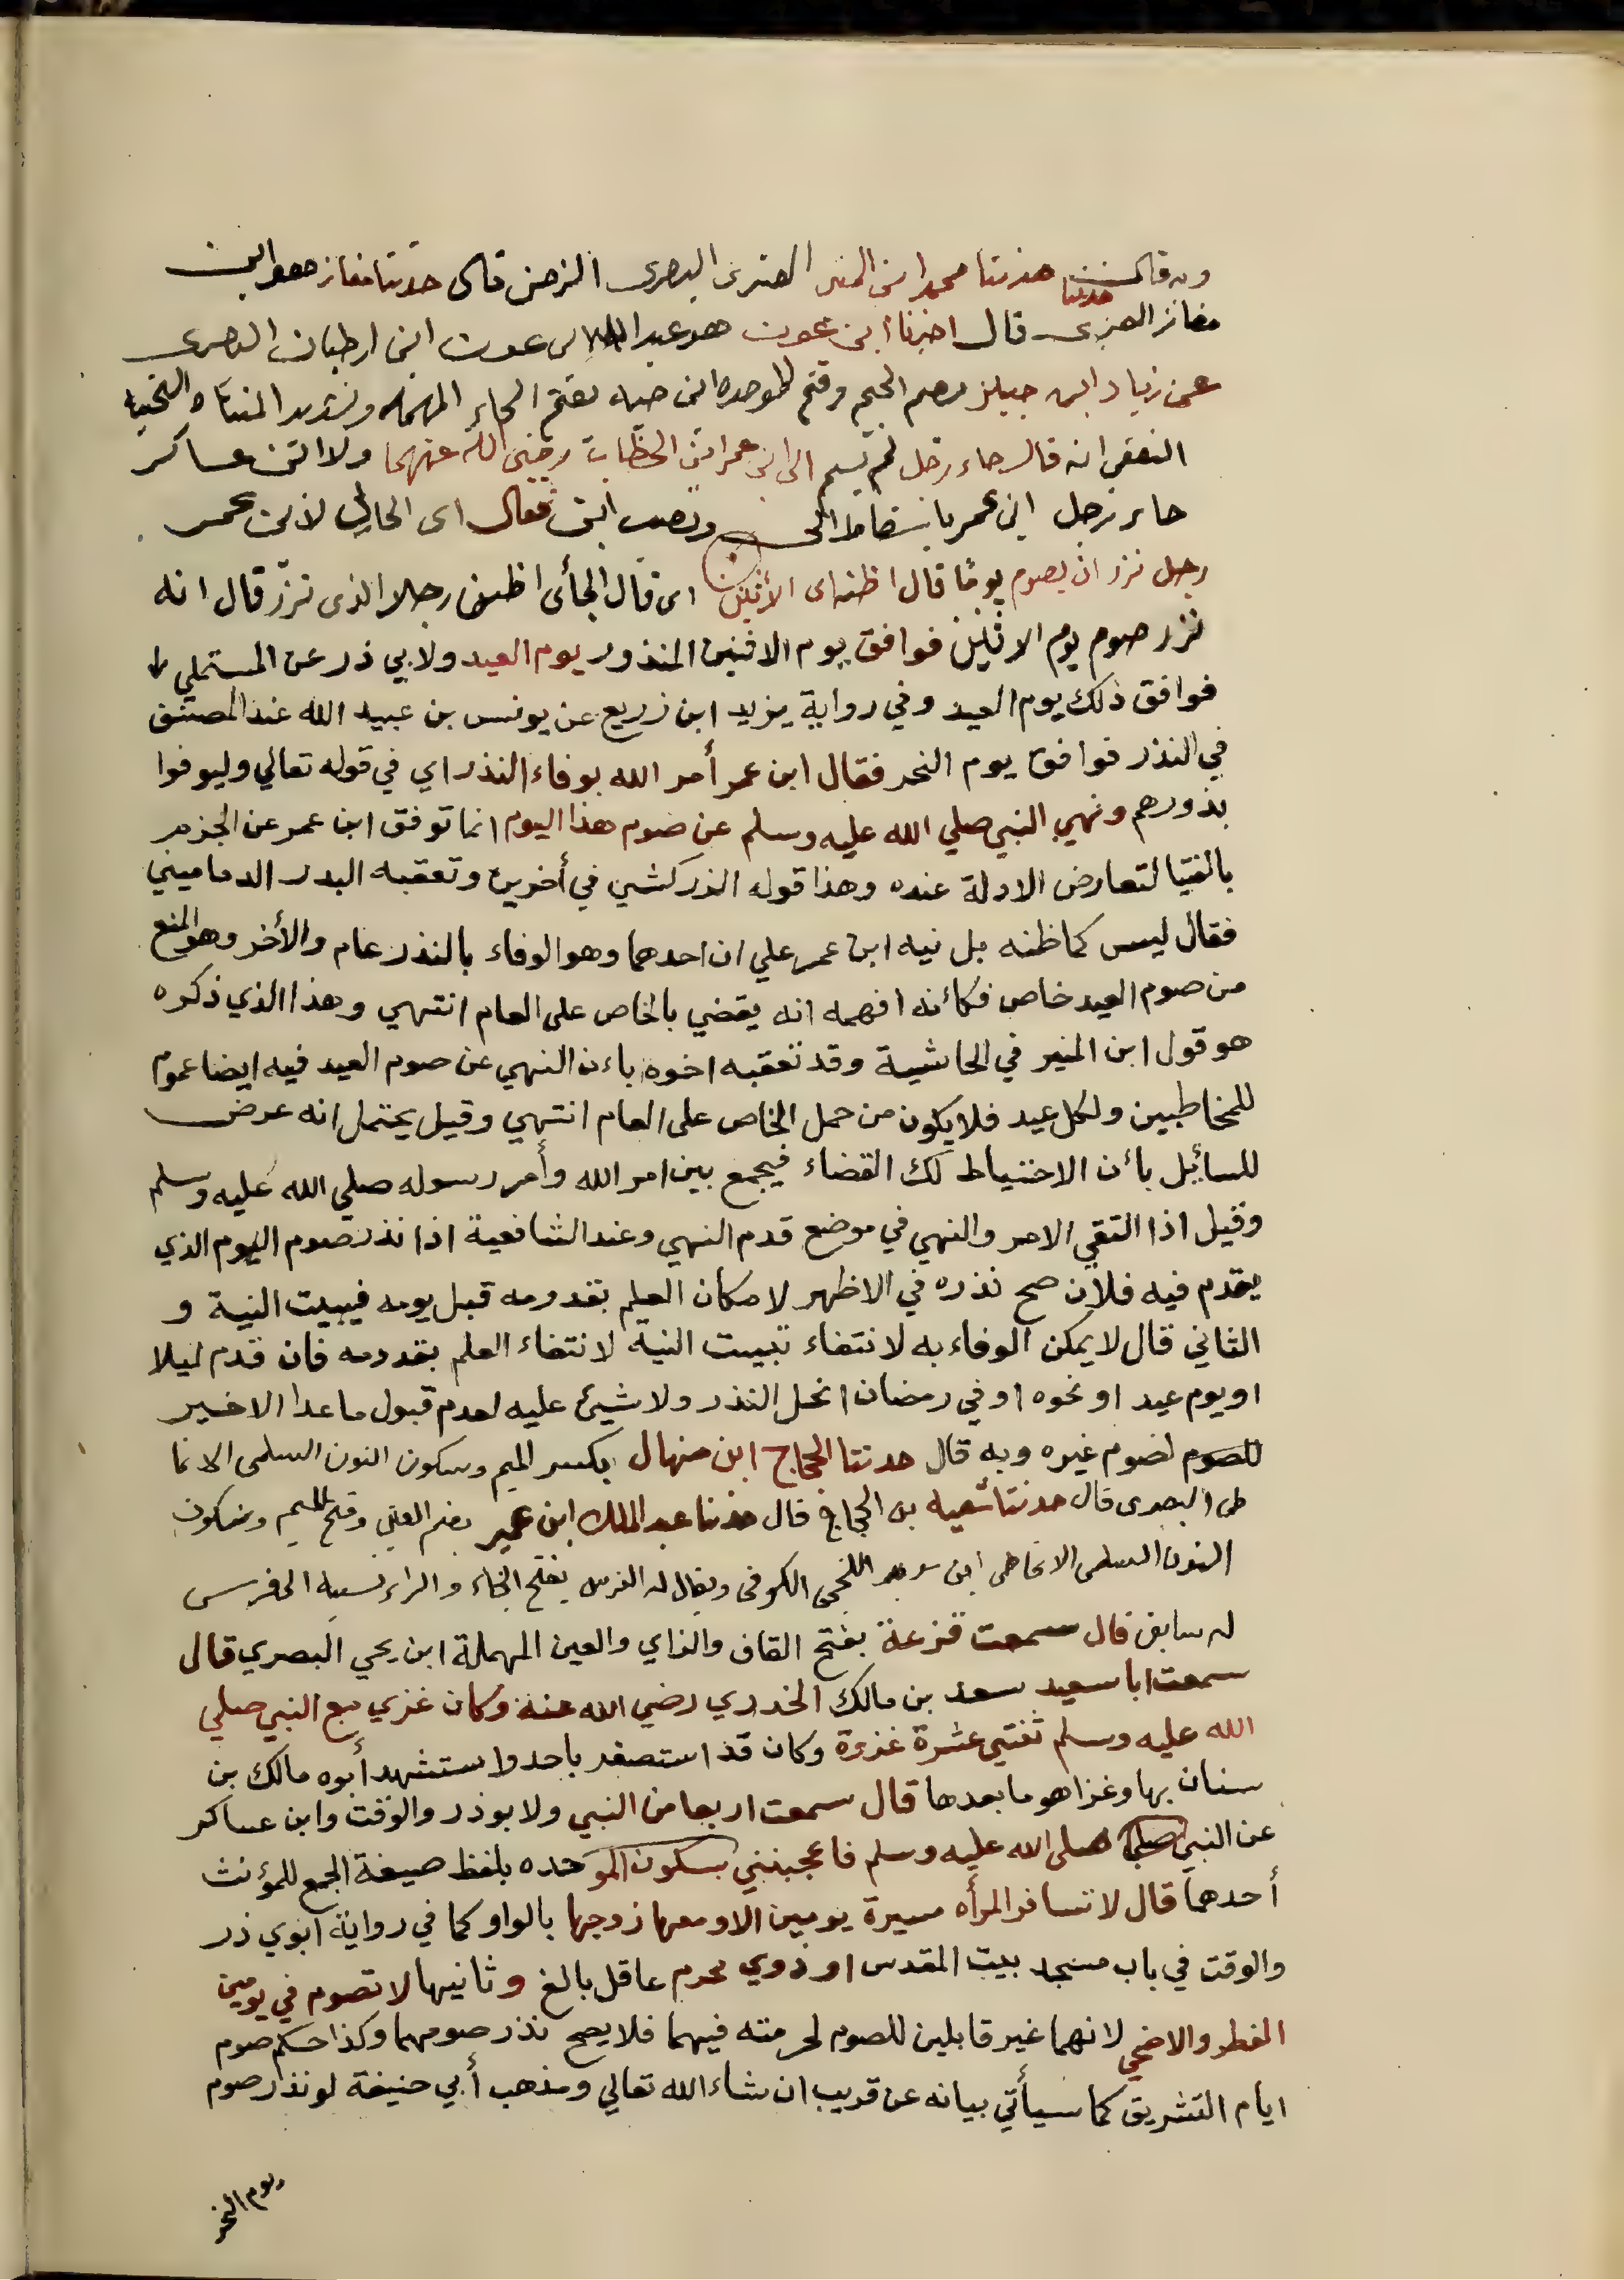 وبه قال حدثنا حدثنا محمد ابن المثنى العنزى البصرى الزمن قال حدثنا معاذ هو ابن
معاذ العنبرى قال اخبرنا ابن عون هو عبد الله بن عون ابن ارطبان البصرى
عن زياد ابن جبير بضم الجيم وفتح الموحده ابن حيه بفتح الحاء المهمله وتشديد المثناه التحتيه
الثقفى انه قال جاء رجل لم يسم الى ابن عمر ابن الخطاب رضى الله عنهما ولابن عساكر
جاء رجل ابن عمر باسقاط الى ونصب ابن فقال اى الجائى لابن عمر
رجل نزر ان يصوم يوما قال اظنه اى الأثنين اى قال الجأى اظنه رجلا الذى نزر قال انه
نزر صوم يوم الاثنين فوافق يوم الاثنين المنذور يوم العيد ولابي ذر عن المستملي
فوافق ذلك يوم العيد وفي رواية يزيد ابن زريع عن يونس بن عبيد الله عند المصنف
في النذر فوافق يوم النحر فقال ابن عمر أمر الله بوفاء النذر اي في قوله تعالي وليوفوا
بذورهم ونهي النبي صلي الله عليه وسلم عن صوم هذا اليوم انما توفق ابن عمر عن الجزم
بالفتيا لتعارض الادلة عنده وهذا قوله الذركشي في أخرين وتعقبه البدر الدماميني
فقال ليس كما ظنه بل نبه ابن عمر علي ان احدهما وهو الوفاء بالنذر عام والأخر وهو المنع
من صوم العيد خاص فكأنه افهمه انه يقضي بالخاص على العام انتهي وهذا الذي ذكره
هو قول ابن المنير في الحاشية وقد تعقبه اخوه باءن النهي عن صوم العيد فيه ايضا عموم
للمخاطبين ولكل عيد فلا يكون من حمل الخاص على العام انتهي وقيل يحتمل انه عرض
للسائيل بأن الاحتياط لك القضاء فيجمع بين امر الله وأمر رسوله صلي الله عليه وسلم
وقيل اذا التقي الامر والنهي في موضع قدم النهي وعند الشافعية اذا نذر صوم اليوم الذي
يقدم فيه فلان صح نذره في الاظهر لامكان العلم بقدومه قبل يومه فيبيت النية و
الثاني قال لا يمكن الوفاء به لانتفاء تبييت النية لانتفاء العلم بقدومه فان قدم ليلا
او يوم عيد او نحوه او في رمضان انحل النذر ولا شيئ عليه لعدم قبول ماعدا الاخير
للصوم لصوم غيره وبه قال حدثنا الحجاج ابن منهال بكسر الميم وسكون النون السلمى الانما
طى البصرى قال حدثنا شعبه بن الحجاج قال حدثنا عبد الملك ابن عمير بضم العين وفتح الميم وسكون
النون السلمى الانماطى ابن سويد اللخمى الكوفى ويقال له الفرسى بفتح الخاء والراء نسبه الى فرس
له سابق قال سمعت قزعة بفتح القاف والزاي والعين المهملة ابن يحي البصري قال
سمعت ابا سعيد سعد بن مالك الخدري رضي الله عنه وكان غزي مع النبي صلي
الله عليه وسلم ثنتي عشرة غزوة وكان قد استصغر باحد واستشهد أبوه مالك بن
سنان بها وغزا هو ما بعدها قال سمعت اربعا من النبي ولابوذر والوقت وابن عساكر
عن النبي صلي صلى الله عليه وسلم فاعجبنني بسكون الموحده بلفظ صيغة الجمع للمؤنث
أحدها قال لا تسافر المرأه مسيرة يومين الاومعها زوجها بالواو كما في رواية ابوي ذر
والوقت في باب مسجد بيت المقدس او ذوي محرم عاقل بالغ وثانيها لا تصوم في يومين
الفطر والاضحي لانهما غير قابلين للصوم لحرمته فيهما فلا يصح نذر صومهما وكذا حكم صوم
ايام التشريق كما سيأتي بيانه عن قريب ان شاء الله تعالي ومذهب أبي حنيفة لو نذر صوم
يوم النحر